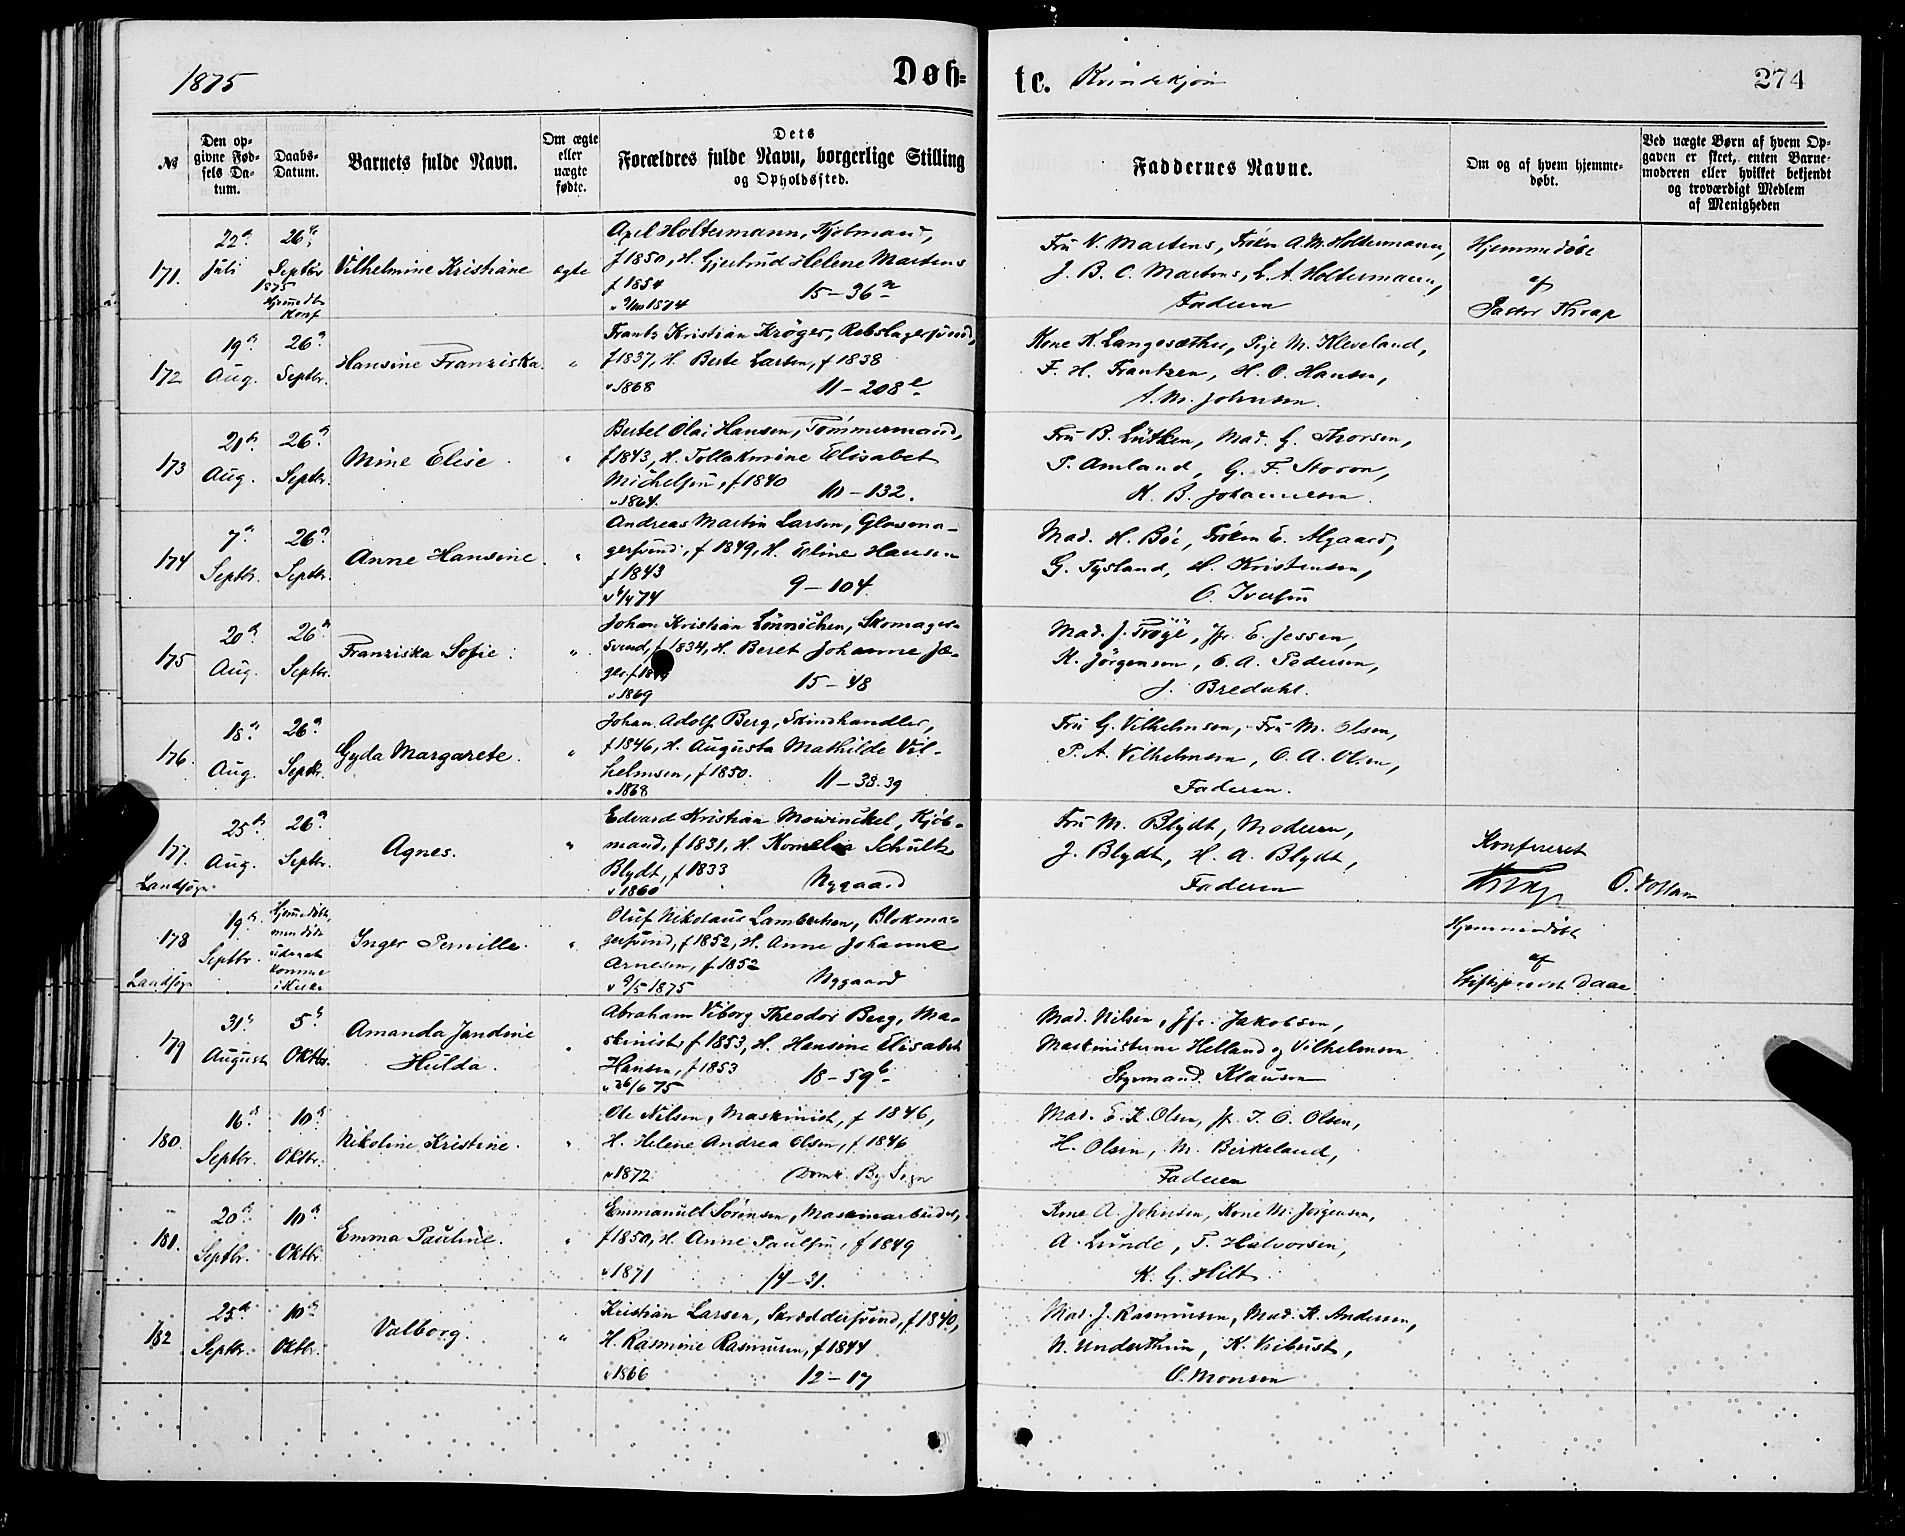 1875
Døb-
te. Kvindekjøn
274
№
Den op-
givne Fød-
sels Da-
tum.
Daabs-
Datum.
Barnets fulde Navn.
Om ægte
eller
uægte
fødte.
Dets
Forældres fulde Navn, borgerlige Stilling
og Opholdssted.
Faddernes Navne.
Om og af hvem hjemme-
døbt.
Ved uægte Børn af hvem Op-
gaven er skeet, enten Barne-
moderen eller hvilket bekjendt
og troværdigt Medlem
af Menigheden
171.
22d
Juli
26d
Septbr
1875
Hjemmedbt
Konf
Vilhelmine Kristiane
ægte
Axel Holtermann, Kjøbmand,
f 1850, H. Gjertrud Helene Martens
f 1854
1874
15-36
Fru V. Martens, Frøken A. M. Holtermann,
J. B. C. Martens, L. A. Holtermann,
Faderen
Hjemmedøbt
af
Pastor Krap
172
19d
Aug.
26d
Septbr.
Hansine Franziska.
"
Frantz Kristian Krøger, Rebslagersvend,
f 1837, H. Berte Larsen, f 1838
v 1868
11-208
Kone K. Langesæther, Pige M. Kleveland,
F. H. Frantzen, H. O. Hansen,
A. M. Johnsen.
173
21d
Aug.
26d
Septbr.
Mine Elise
"
Bertel Olai Hansen, Tømmermand,
f 1843, H. Tollekmine Elisabet
Michelsen, f 1840
v 1864.
10-132.
Fru B. Lütken, Mad. G. Thorsen,
P. Amland, G. F. Storon,
K. B. Johannesen.
174
7d
Septbr.
26d
Septbr.
Anne Hansine.
"
Andreas Martin Larsen, Glasma-
gersvend, f 1849, H. Eline Hansen
f 1843
v 6/4 74
9-104.
Mad. H. Böe, Frøken E. Algaard,
G. Tysland, H. Kristensen,
O. Iversen
175
20d
Aug.
26d
Septbr.
Franziska Sofie.
"
Johan Kristian Lönnichen, Skomager-
svend, f 1834, H. Beret Johanne Jæ-
ger f
v 1869
15-48
Mad. J. Tröye, Jfr. E. Jessen,
K. Jørgensen, C. A. Pedersen,
J. Bredahl.
176.
18d
Aug.
26d
Septbr.
Gyda Margarete.
"
Johan Adolf Berg, Skindhandler,
f 1846, H. Augusta Mathilde Vil-
helmsen, f 1850.
v 1868
11-38.39
Fru G. Vilhelmsen, Fru M. Olsen,
P. A. Vilhelmsen, O. A. Olsen,
Faderen.
177.
Landsogn.
25d
Aug.
26d
Septbr.
Agnes.
"
Edvard Kristian Mowinckel, Kjøb-
mand, f 1831, H. Kornelia Schultz
Blydt, f 1833
v 1860
Nygaard
Fru M. Blydt, Moderen,
J. Blydt, H. A. Blydt,
Faderen
Konfereret
178
Landsogn
19d
Septbr.
Hjemmedøbt,
men døde
uden at
komme
i Kirke
Inger Pernille.
"
Oluf Nikolaus Lambertsen, Blokma-
gersvend, f 1852, H. Anne Johanne
Arnesen, f 1852
v 9/5 1875
Nygaard
Hjemmedøbt
af
Stiftsprovst Daae
179
31d
August
5d
Oktbr.
Amanda Jandine
Hulda.
"
Abraham Viborg Theodor Berg, Ma-
skinist, f 1853, H. Hansine Elisabet
Hansen, f 1853
v 26/6 75
18-59b
Mad. Nilsen, Jfr. Jakobsen,
Maskinisterne Helland og Vilhelmsen
Styrmand Klausen
180.
16d
Septbr.
10d
Oktbr.
Nikoline Kristine.
"
Ole Nilsen, Maskinist, f 1846,
H. Helene Andrea Olsen, f 1846
v 1872
Domk. By. Sogn
Mad. E. K. Olsen, Jfr. J. O. Olsen,
H. Olsen, M. Birkeland,
Faderen
181.
20d
Septbr.
10d
Oktbr
Emma Pauline.
"
Emmanuel Sørensen, Maskinarbeider,
f 1850, H. Anne Paulsen, f 1849
v 1871
14-31.
Kone A. Johnsen, Kone M. Jørgensen,
A. Lunde, T. Halvorsen,
K. G. Hilt.
182
25d
Septbr.
10d
Oktbr.
Valborg.
"
Kristian Larsen, Skræddersvend, f 1840,
H. Rasmine Rasmusen, f 1844
v 1866
12-17
Mad. J. Rasmusen, Mad. K. Andersen,
N. Underthun, K. Vibust,
O. Monsen